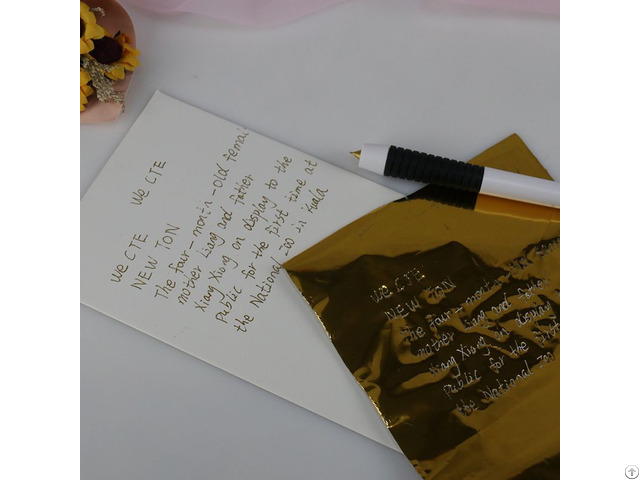 we CTE
we CTE
NEW TON
The four-month-old femal
mother Liang and father
Xiang Xiong on display to the
public for the first time at
the National Zoo in Kuala
we CTE
NEW TON
the four-month-old
mother Liang and father
Xiang Xiong on display
public for the first
the National Zoo